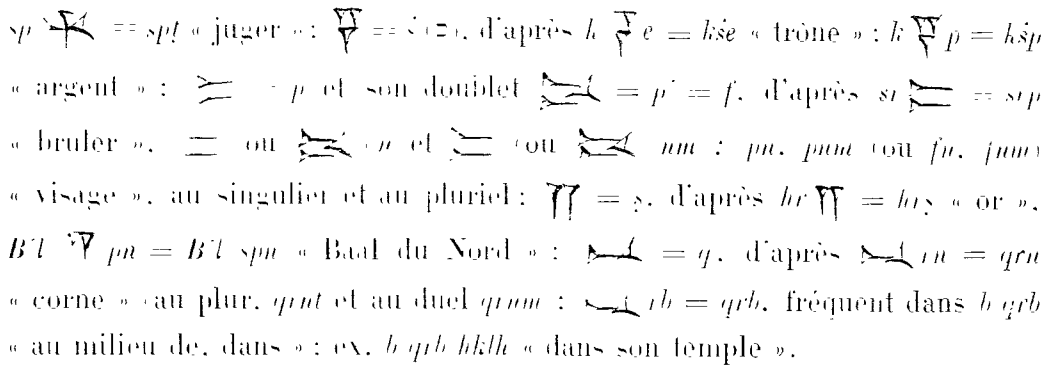 sp = spṭ « juger » : = ś (□), d'après k e = kśe « trône » ; k p = kśp
« argent » : p et son doublet = p = f, d'après = srp
« bruler », ou n et (ou nm : pn, pnm (ou fn, fnm)
« visage », au singulier et au pluriel : = ṣ, d'après hr = hrṣ « or »,
B'l pn = B'l ṣpn « Baal du Nord » : = q, d'après rn = qrn
« corne » (au plur. qrnt et au duel qrnm : rb = qrb, fréquent dans b qrb
« au milieu de, dans » : ex. b qrb hklh « dans son temple ».